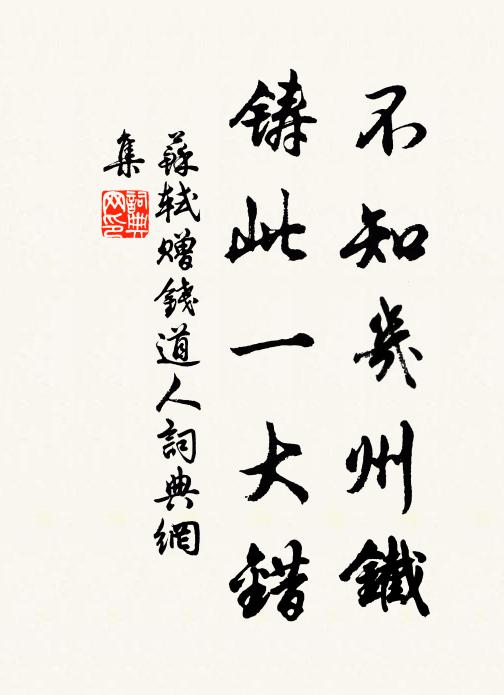 不知幾州鐵
鑄此一大錯
蘇軾贈錢道人詞典網
集
詞典網印